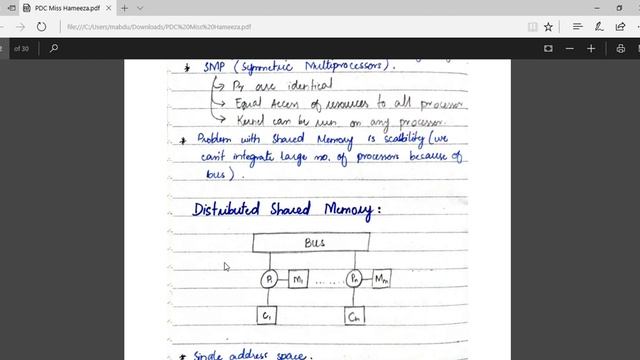 PDC Miss Hameeza.pdf
file:///C:/Users/mabdu/Downloads/PDC%20Miss%20Hameeza.pdf
of 30
* SMP (Symmetric Multiprocessors).
→ Pr are identical
→ Equal Access of resources to all processor
→ Kernel can be run on any processor.
* Problem with Shared Memory is scalbility (we
can't integrate large no. of processors because of
bus).
Distributed Shared Memory:
Bus
P1 M1 ...... Pn Mm
C1 Cn
* Single address space.